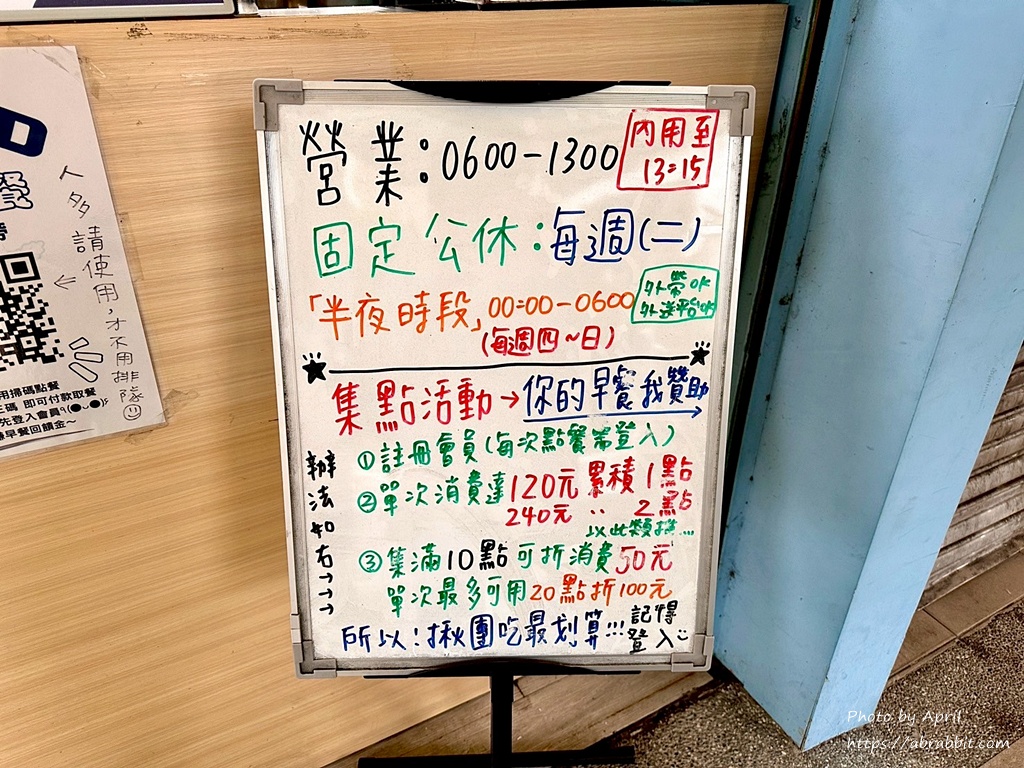 營業：0600-1300
內用至
13:15
固定公休：每週(二)
「半夜時段」00:00-0600
(每週四~日)
外帶OK
外送平台OK
集點活動→你的早餐我贊助
辦法如右→→→
①註冊會員(每次點餐需登入)
②單次消費達120元累積1點
240元 〃 2點
以此類推…
③集滿10點可折消費50元
單次最多可用20點折100元
所以！揪團吃最划算!!!
記得
登入
人多請使用，才不用排隊
用掃碼點餐
碼 即可付款取餐
先登入會員
早餐回饋金~
Photo by April
https://abrabbit.com